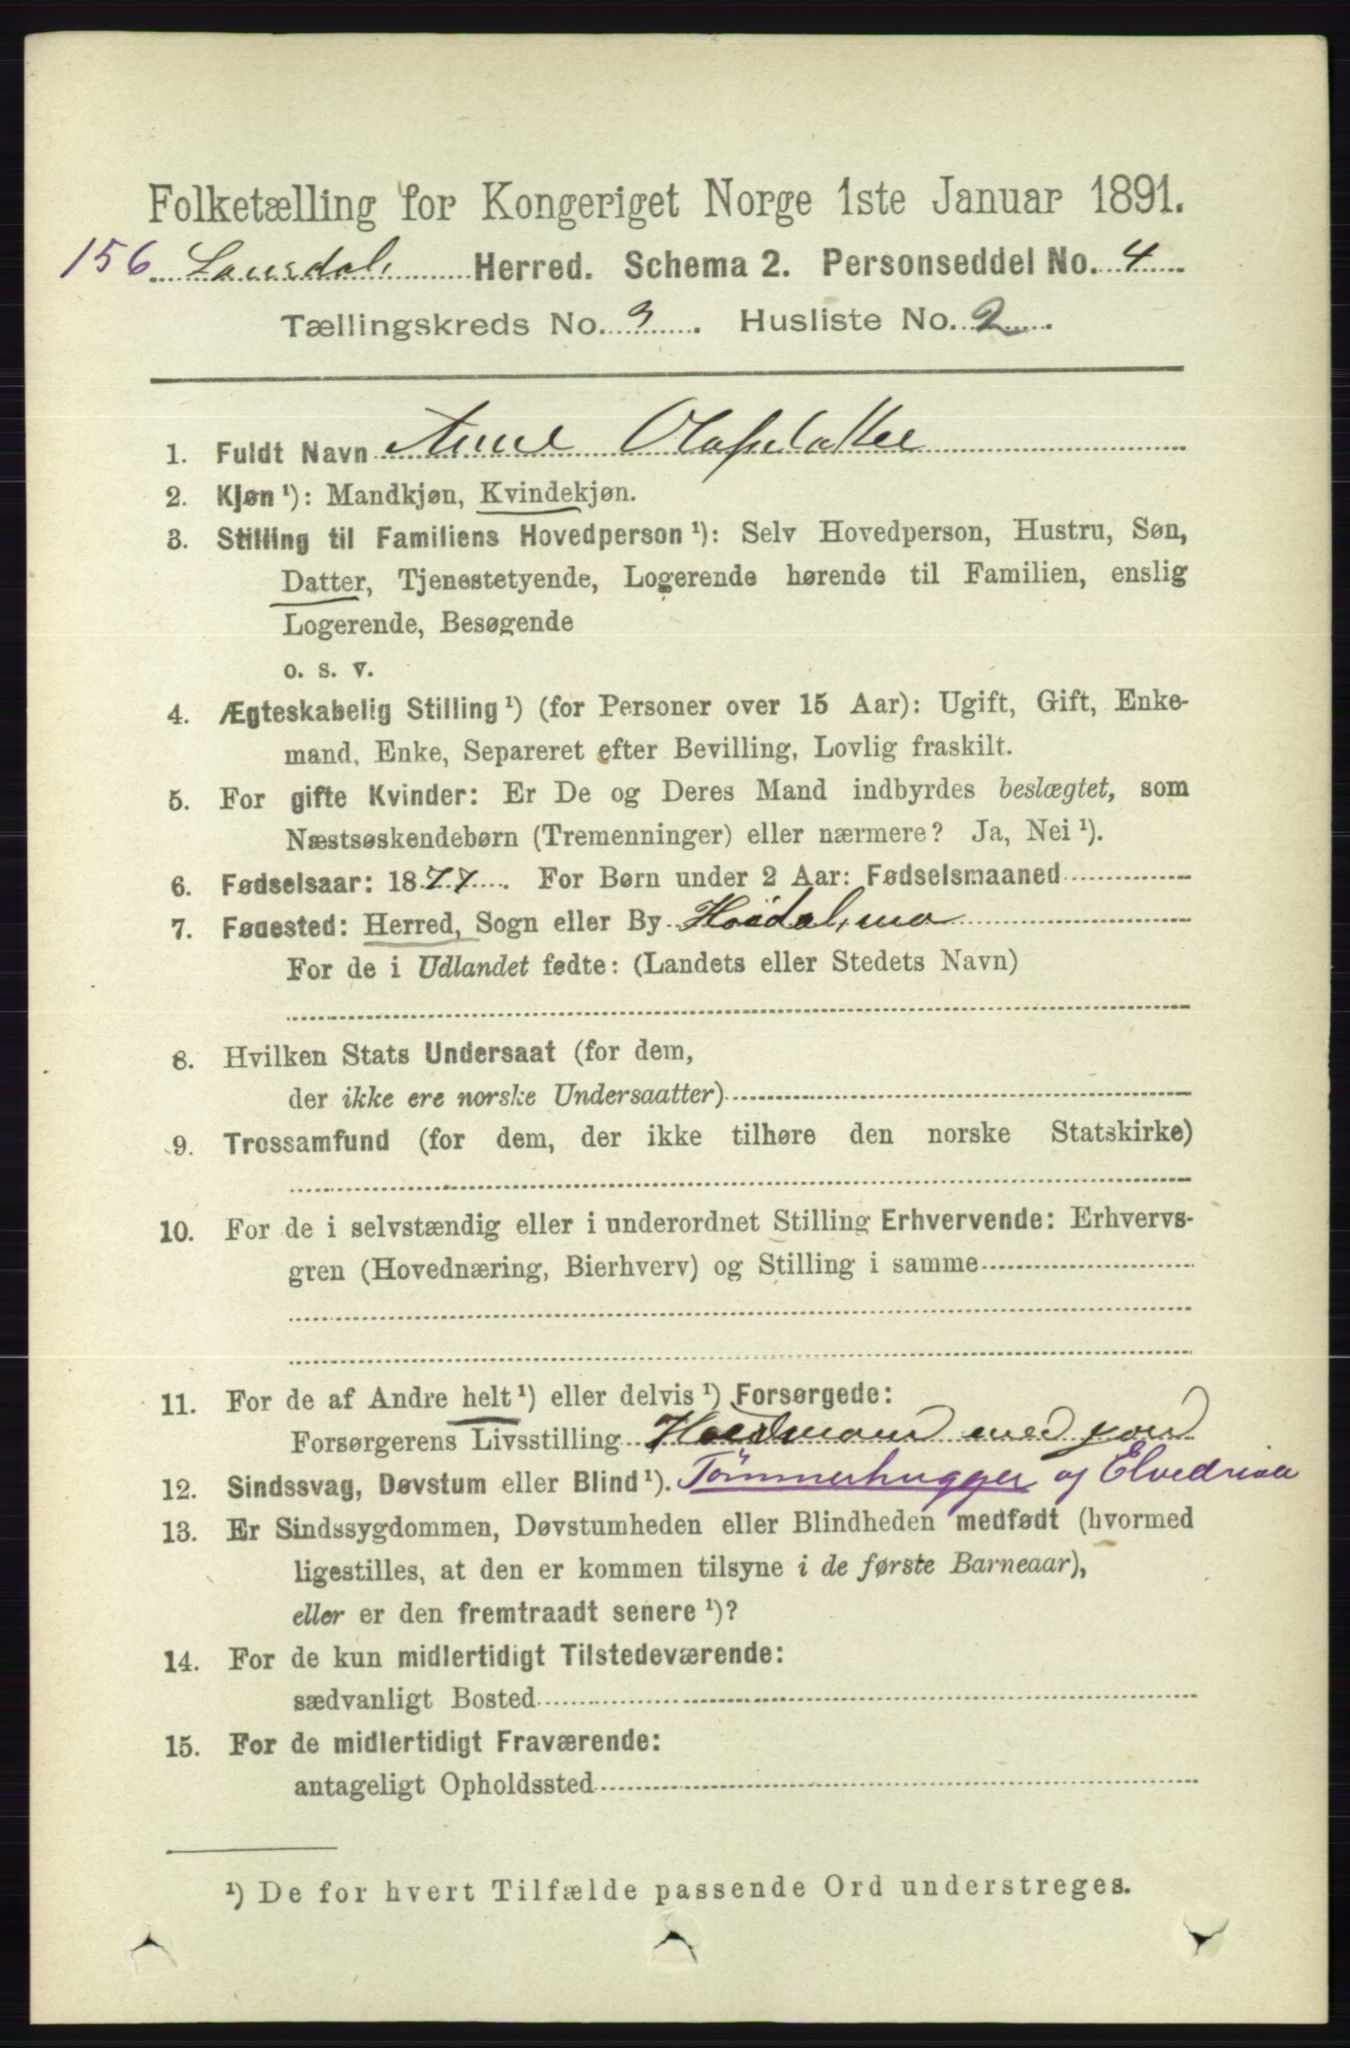 Folketælling for Kongeriget Norge 1ste Januar 1891.
156 Laurdal Herred. Schema 2. Personseddel No. 4
Tællingskreds No. 3. Husliste No. 2.
1. Fuldt Navn Anne Olafsdatter
2. Kjøn ¹): Mandkjøn, Kvindekjøn.
3. Stilling til Familiens Hovedperson ¹): Selv Hovedperson, Hustru, Søn,
Datter, Tjenestetyende, Logerende hørende til Familien, enslig
Logerende, Besøgende
o. s. v.
4. Ægteskabelig Stilling ¹) (for Personer over 15 Aar): Ugift, Gift, Enke-
mand, Enke, Separeret efter Bevilling, Lovlig fraskilt.
5. For gifte Kvinder: Er De og Deres Mand indbyrdes beslægtet, som
Næstsøskendebørn (Tremenninger) eller nærmere? Ja, Nei ¹).
6. Fødselsaar: 1877. For Børn under 2 Aar: Fødselsmaaned
7. Fødested: Herred, Sogn eller By Høidalsmo
For de i Udlandet fødte: (Landets eller Stedets Navn)
8. Hvilken Stats Undersaat (for dem,
der ikke ere norske Undersaatter)
9. Trossamfund (for dem, der ikke tilhøre den norske Statskirke)
10. For de i selvstændig eller i underordnet Stilling Erhvervende: Erhvervs-
gren (Hovednæring, Bierhverv) og Stilling i samme
11. For de af Andre helt ¹) eller delvis ¹) Forsørgede:
Forsørgerens Livsstilling Husmand med jord
12. Sindssvag, Døvstum eller Blind ¹). Tømmerhugger og Elvedriver
13. Er Sindssygdommen, Døvstumheden eller Blindheden medfødt (hvormed
ligestilles, at den er kommen tilsyne i de første Barneaar),
eller er den fremtraadt senere ¹)?
14. For de kun midlertidigt Tilstedeværende:
sædvanligt Bosted
15. For de midlertidigt Fraværende:
antageligt Opholdssted
¹) De for hvert Tilfælde passende Ord understreges.